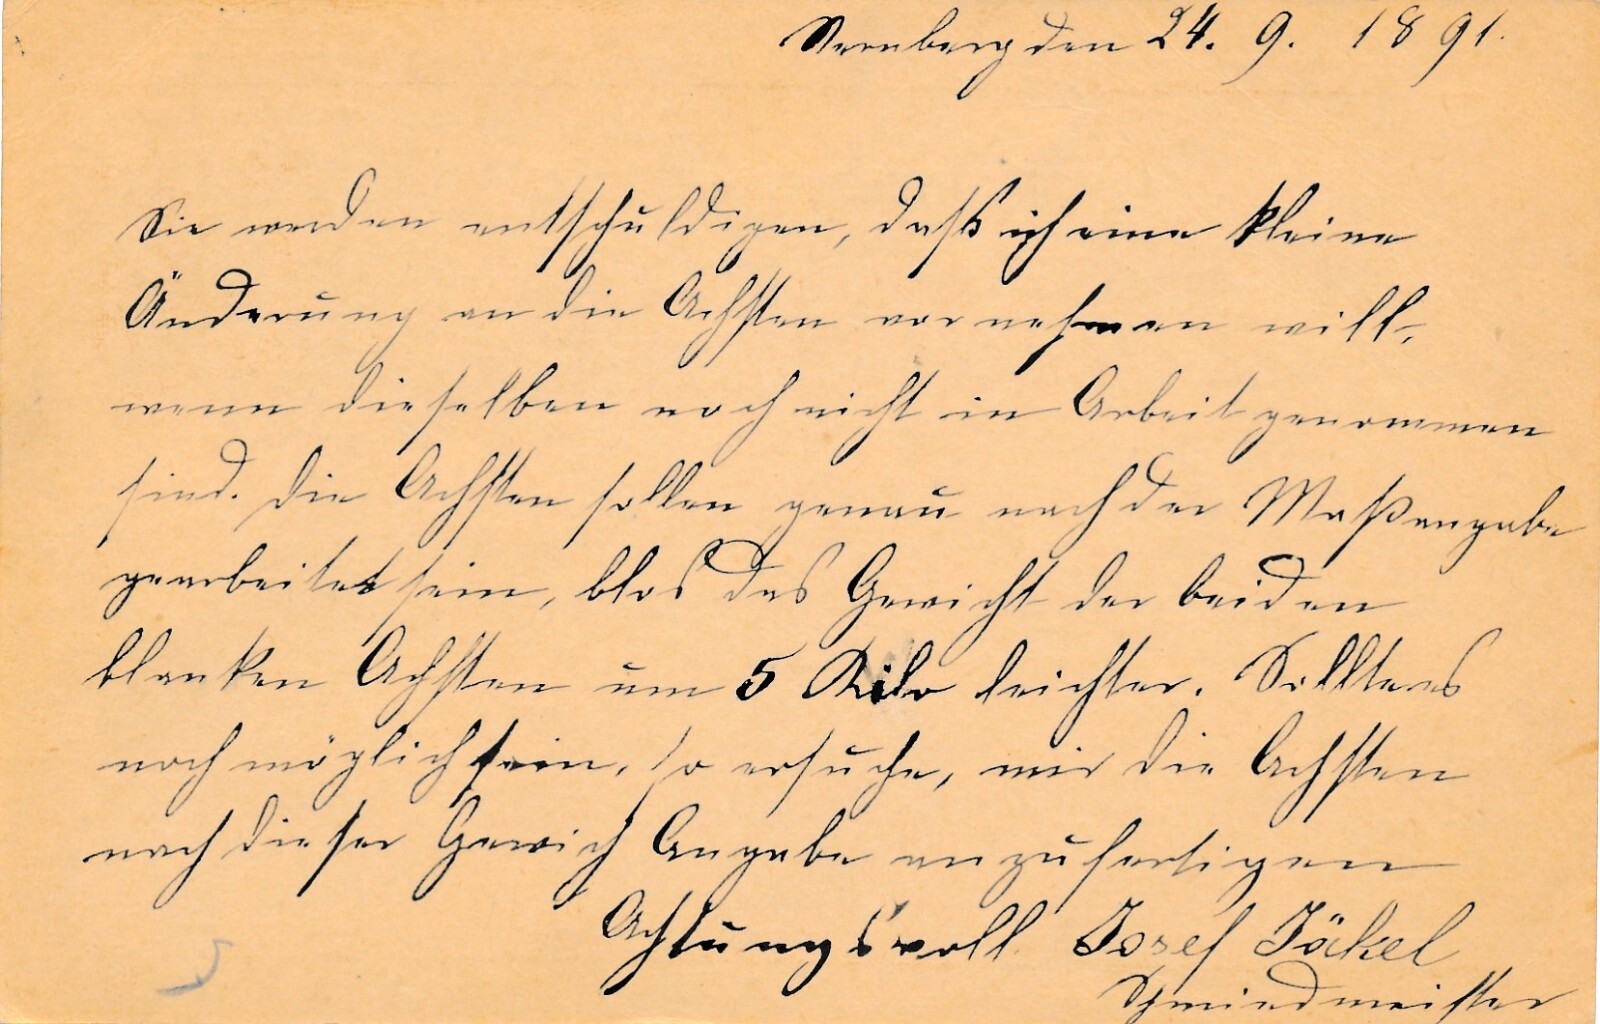 Sternberg den 24. 9. 1891.
Sie werden entschuldigen, daß ich eine kleine
Änderung an die Achsten vornehmen will,
wenn dieselben noch nicht in Arbeit genommen
sind. Die Achsten sollen genau nach der Maßangabe
gearbeitet sein, blos das Gewicht der beiden
blanken Achsten um 5 Kilo leichter. Sollte es
noch möglich sein, so ersuche, mir die Achsten
nach dieser Gewich Angabe anzufertigen
Achtungsvoll Josef Jäkel
Schmiedmeister